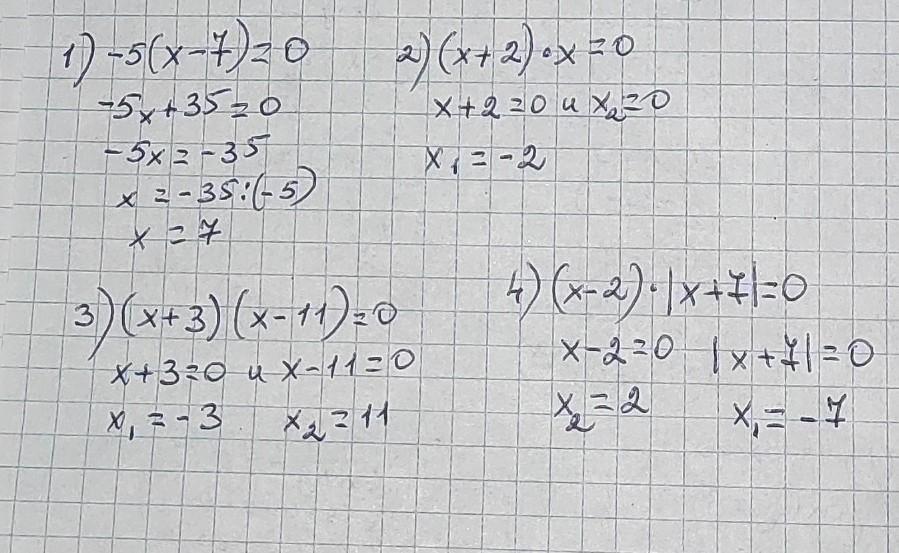 1) -5(x-7)=0
-5x+35=0
-5x=-35
x=-35:(-5)
x=7
2) (x+2)·x=0
x+2=0 и x₂=0
x₁=-2
3) (x+3)(x-11)=0
x+3=0 и x-11=0
x₁=-3 x₂=11
4) (x-2)·|x+7|=0
x-2=0 |x+7|=0
x₂=2 x₁=-7